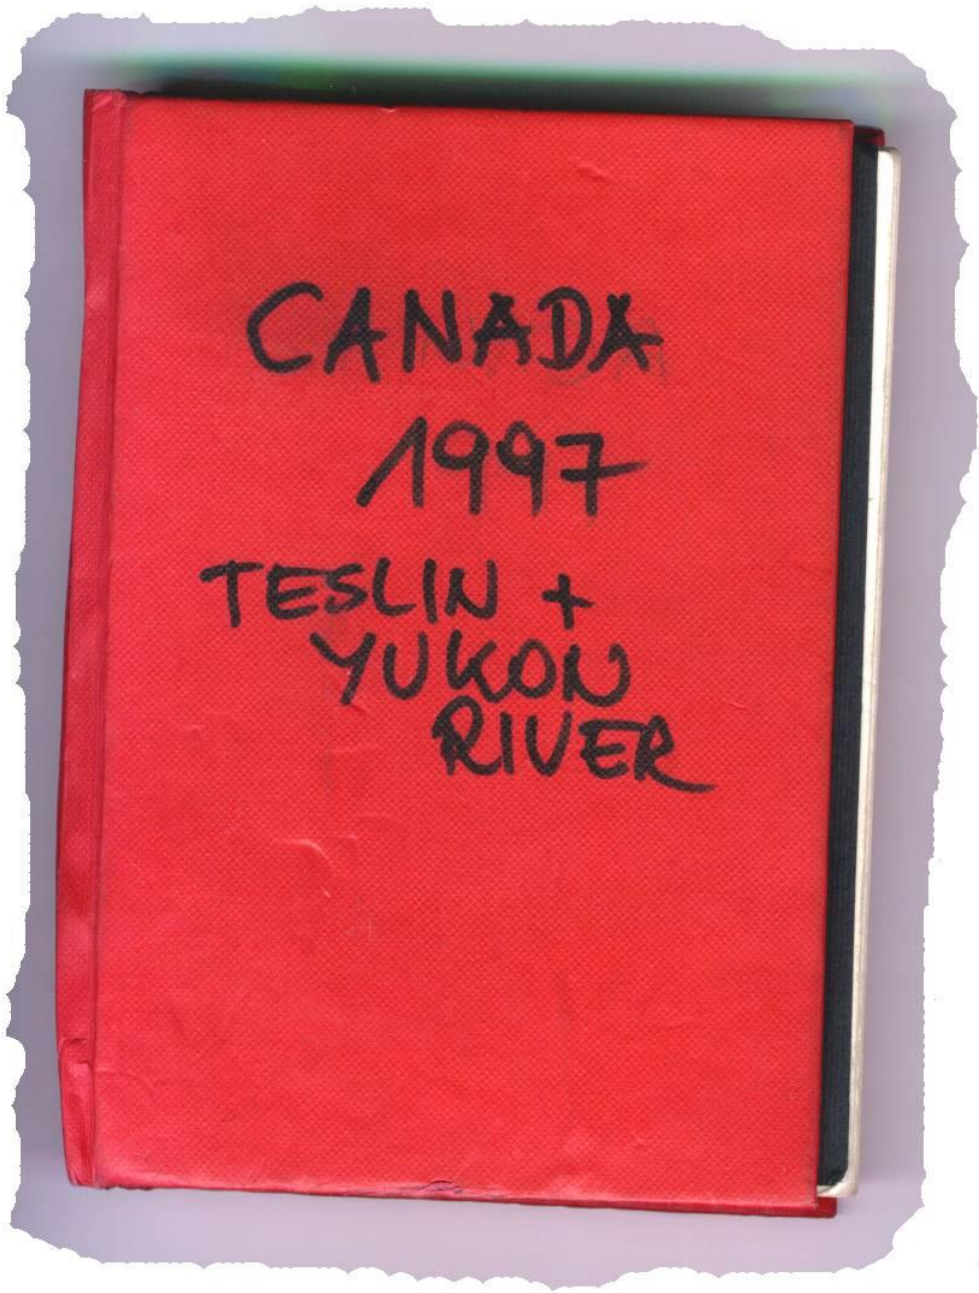 CANADA
1997
TESLIN +
YUKON
RIVER